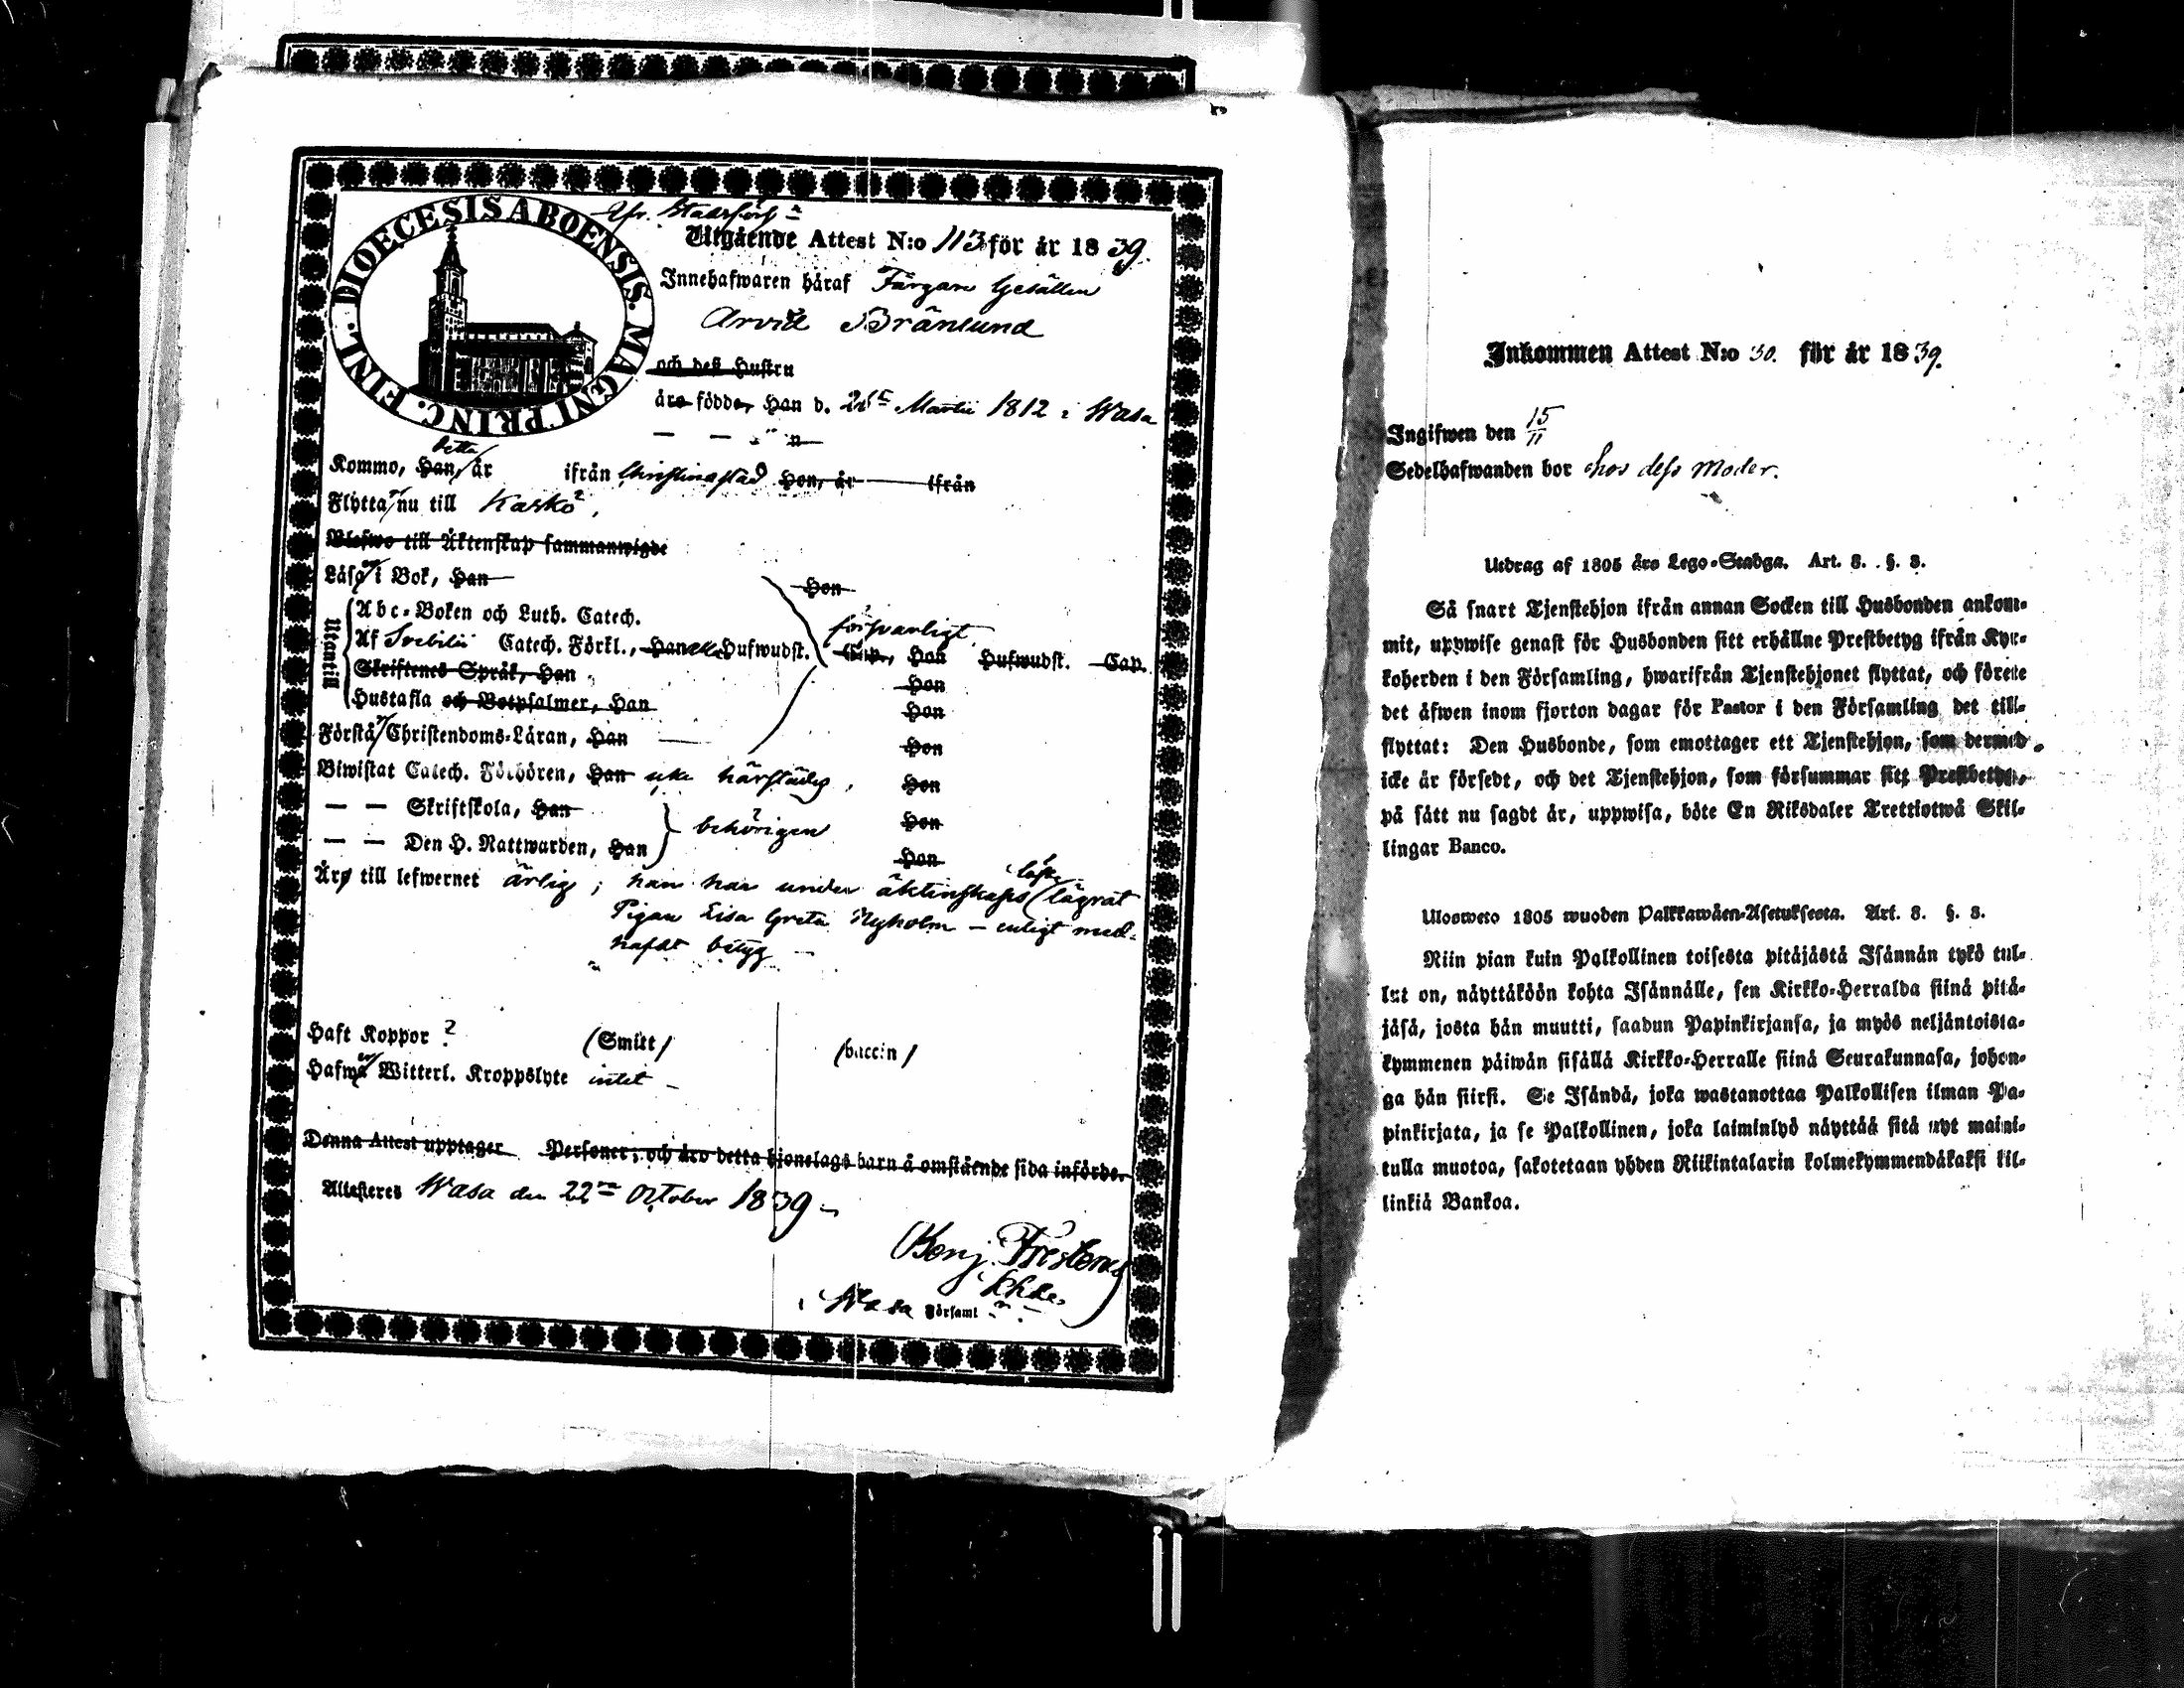 DIOECESIS ABOENSIS. MAGNI PRINC. FINL.
Utgående Attest N:o 113 för år 1839.
Innehafwaren häraf Färgare Gesällen
Arvid Bränlund
och deß Hustru
äro födde, Han d. Martii 1812 i Wasa
— — " n
Kommo, Han, detta år ifrån Christinastad Hon, år ifrån
Flytta nu till Kaskö,
Blefwo till Äktenskap sammanwigde
Läsa i Bok, Han Hon
Utantill
Abc-Boken och Luth. Catech.
försvarligt
Af Svebilii Catech. Förkl., Han Hufwudst. Cap., Hon Hufwudst. Cap.
Skriftenes Språk, Han Hon
Hustafla och Botpsalmer, Han Hon
Förstå Christendoms-Läran, Han Hon
Biwistat Catech. Förhören, Han härstädes, Hon
— — Skriftskola, Han Hon
— — Den H. Nattwarden, Han behörigen Hon
Äro till lefwernet ärlig; han har under äktenskaps löfte lägrat
Pigan Lisa Greta Nyholm – enligt med-
hafdt betyg
Haft Koppor ? (Smitt) (vaccin)
Hafwa Witterl. Kroppslyte intet –
Denna Attest upptager Personer; och äro detta hjonelags barn å omstående sida införde.
Attesteres Wasa den 22 October 1839
Benj. Frosterus
Khde
i Wasa Församl
Inkommen Attest N:o 30. för år 1839.
Ingifwen den 15/11
Sedelhafwanden bor hos dess Moder.
Utdrag af 1805 års Lego-Stadga. Art. 8. §. 8.
Så snart Tjenstehjon ifrån annan Socken till Husbonden ankom-
mit, uppwise genast för Husbonden sitt erhållne Prestbetyg ifrån Kyr-
koherden i den Församling, hwarifrån Tjenstehjonet flyttat, och förete
det äfwen inom fjorton dagar för Pastor i den Församling det till-
flyttat: Den Husbonde, som emottager ett Tjenstehjon, som dermed
icke är försedt, och det Tjenstehjon, som försummar sitt Prestbetyg,
på sätt nu sagdt är, uppwisa, böte En Riksdaler Trettiotwå Skil-
lingar Banco.
Ulosweto 1805 wuoden Palkkawäen-Asetuksesta. Art. 8. §. 8.
Niin pian kuin Palkollinen toisesta pitäjästä Isännän tykö tul-
lut on, näyttäköön kohta Isännälle, sen Kirkko-Herralda siinä pitä-
jäsä, josta hän muutti, saadun Papinkirjansa, ja myös neljäntoista-
kymmenen päiwän sisällä Kirkko-Herralle siinä Seurakunnasa, johon-
ga hän siirsi. Se Isändä, joka wastanottaa Palkollisen ilman Pa-
pinkirjata, ja se Palkollinen, joka laiminlyö näyttää sitä nyt maini-
tulla muotoa, sakotetaan yhden Riikintalarin kolmekymmendäkaksi kil-
linkiä Bankoa.